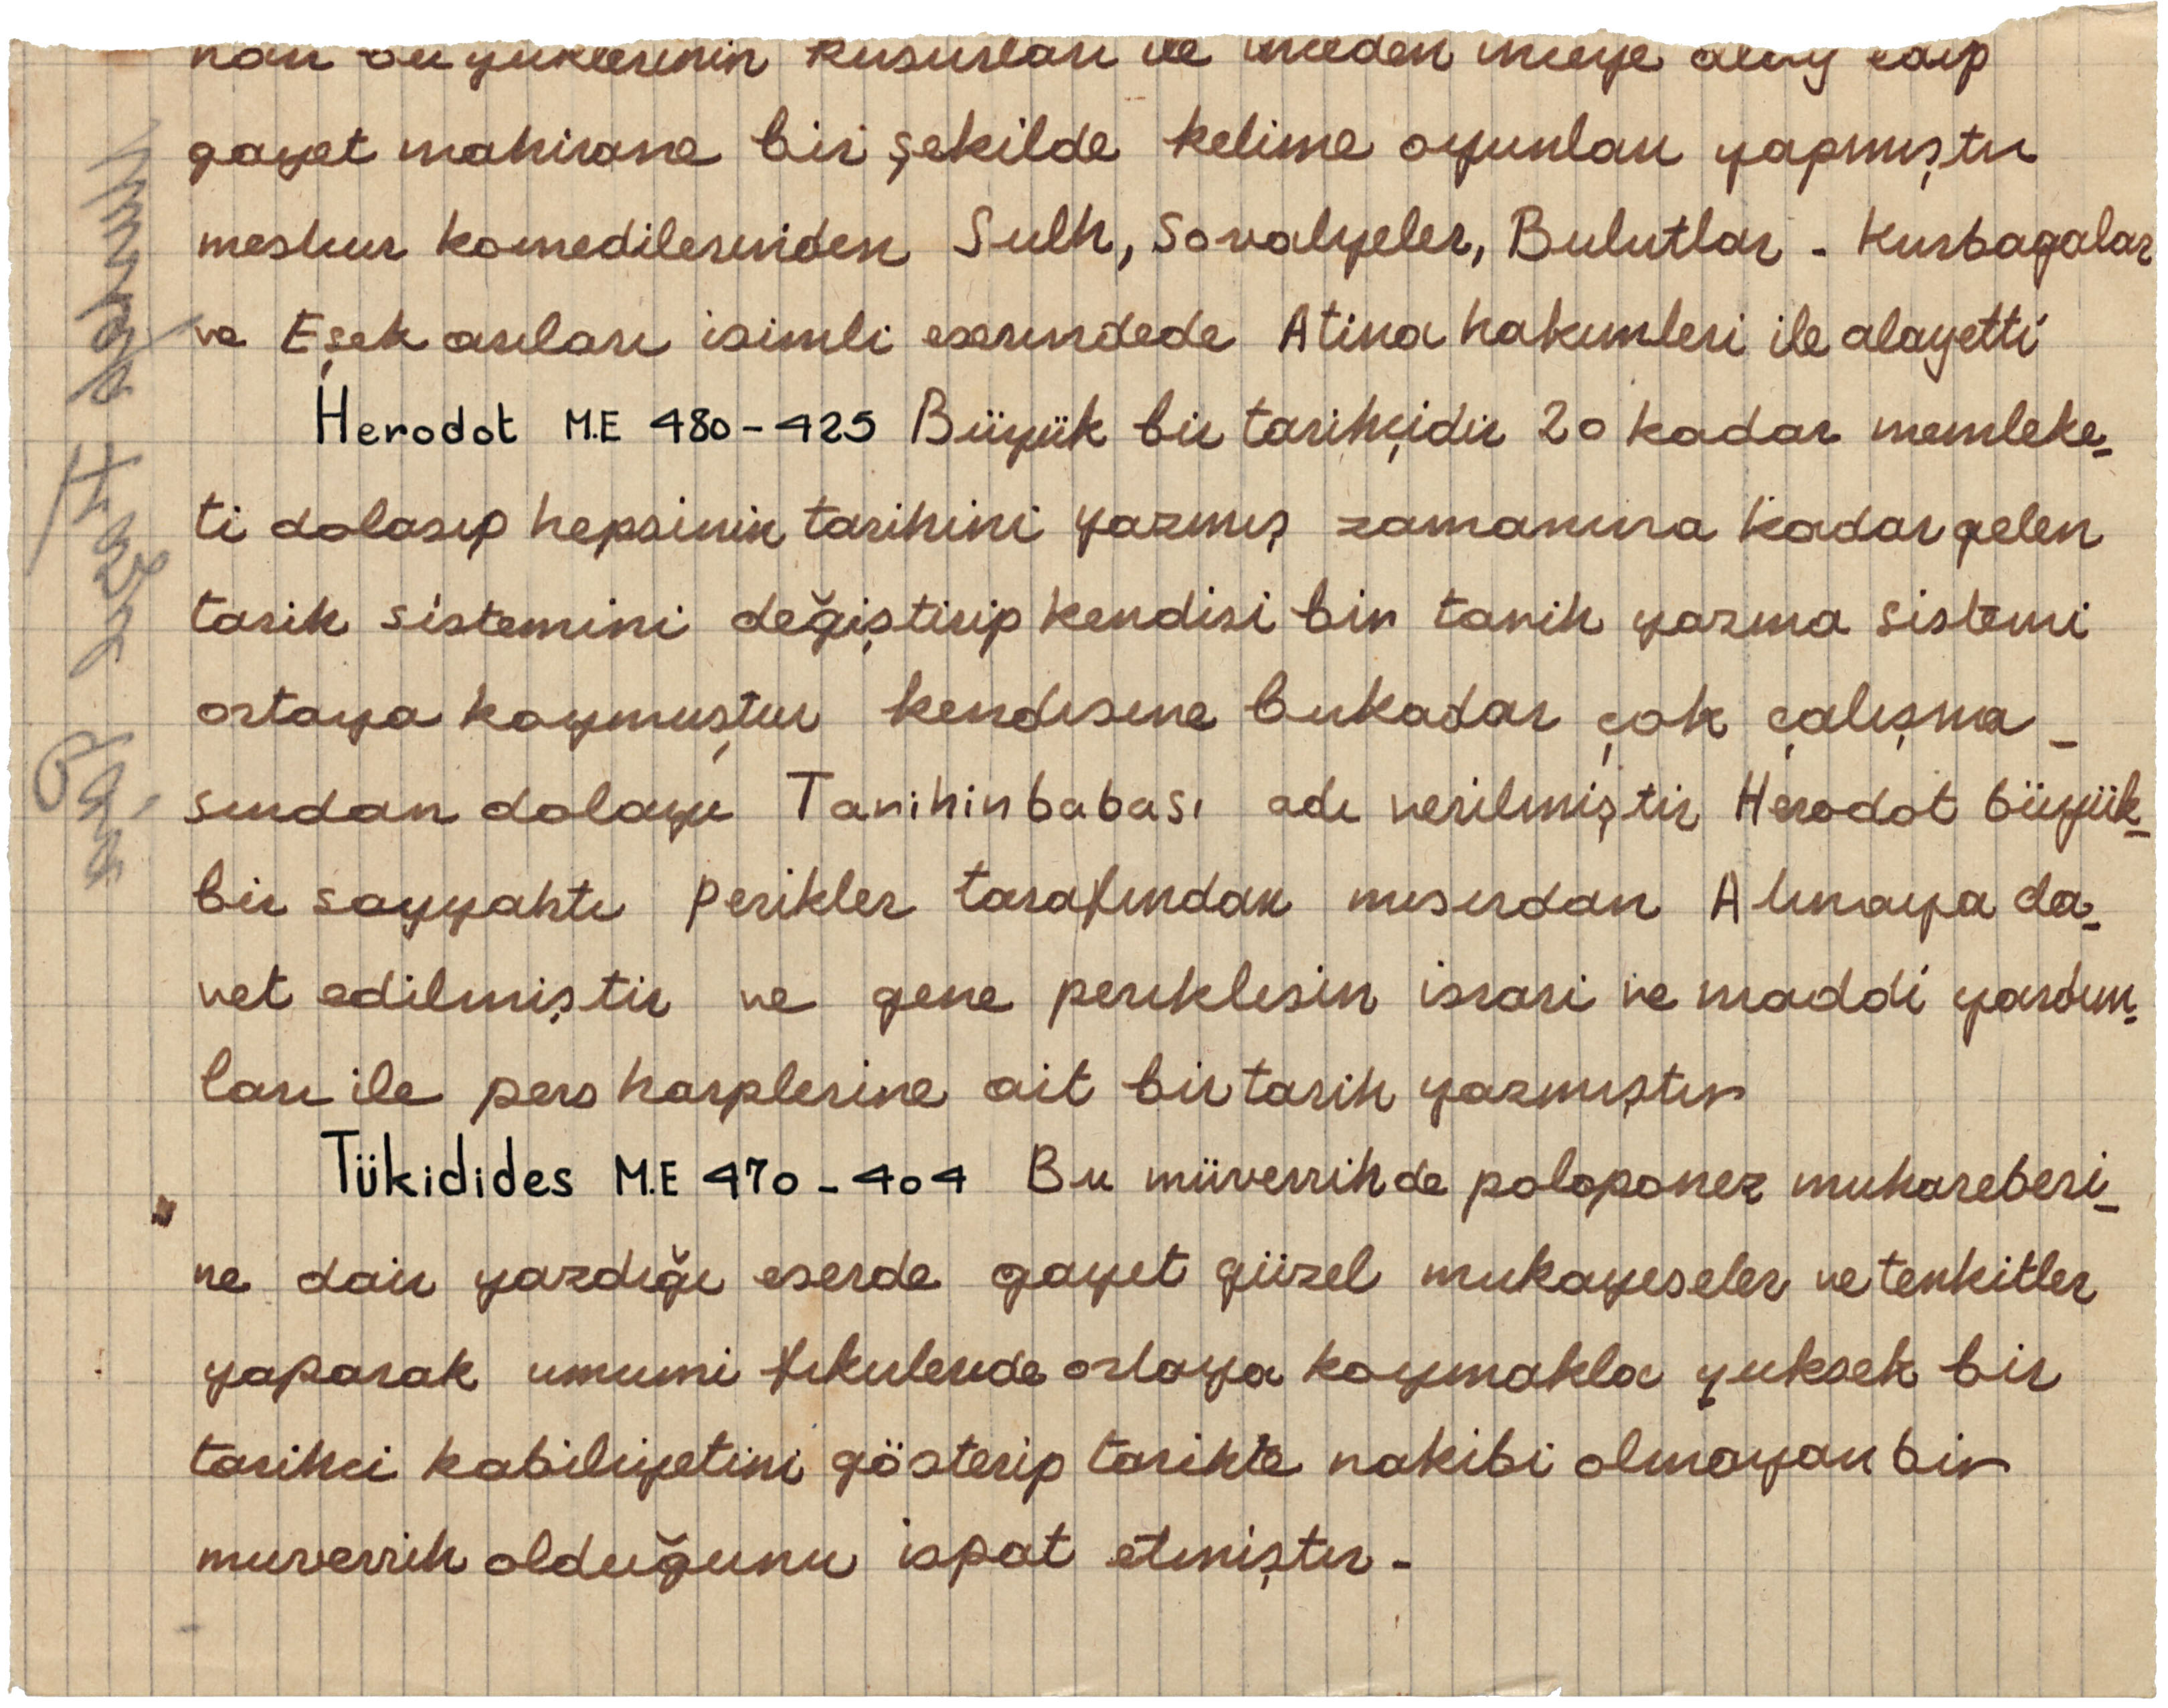 büyüklerinin kusurları ile inceden inceye alay edip
gayet mahirane bir şekilde kelime oyunları yapmıştır
meshur komedilerinden Sulh, Sovalyeler, Bulutlar - Kurbagalar
ve Eşek arıları isimli eserindede Atina hakimleri ile alayetti
Herodot M.E 480-425 Büyük bir tarihçidir 20 kadar memleke-
ti dolasıp hepsinin tarihini yazmış zamanına kadar gelen
tarih sistemini değiştirip kendisi bir tarih yazma sistemi
ortaya koymuştur kendısıne bukadar çok çalışma-
sından dolayı Tarihinbabası adı verilmiştir Herodot büyük-
bir sayyahtı Perikler tarafından mısırdan Atinaya da-
vet edilmiştir ve gene periklesin israri ve maddi yardım-
ları ile pers harplerine ait bir tarih yazmıştır
Tükidides M.E 470-404 Bu müverrihde poloponez muharebesi-
ne dair yazdığı eserde gayet güzel mukayeseler ve tenkitler
yaparak umumi fıkırlerıde ortaya koymakla yuksek bir
tarihci kabiliyetini gösterip tarihte rakibi olmayan bir
muverrih olduğunu ispat etmiştır-